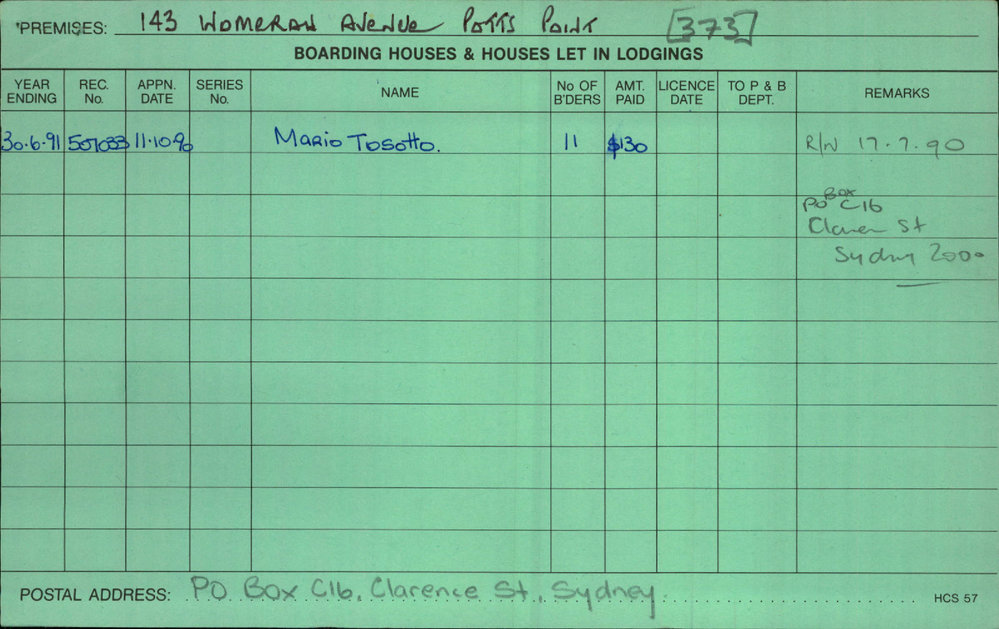 PREMISES: 143 WOMERAH AVENUE POTTS POINT [373]
BOARDING HOUSES & HOUSES LET IN LODGINGS
YEAR ENDING REC. No. APPN. DATE SERIES No. NAME No OF B'DERS AMT. PAID LICENCE DATE TO P & B DEPT. REMARKS
30.6.91 507033 11.10.90 Mario Tosotto. 11 $130 R/N 17.7.90
PO Box C16
Claren St
Sydney 2000
POSTAL ADDRESS: PO Box C16, Clarence St, Sydney
HCS 57